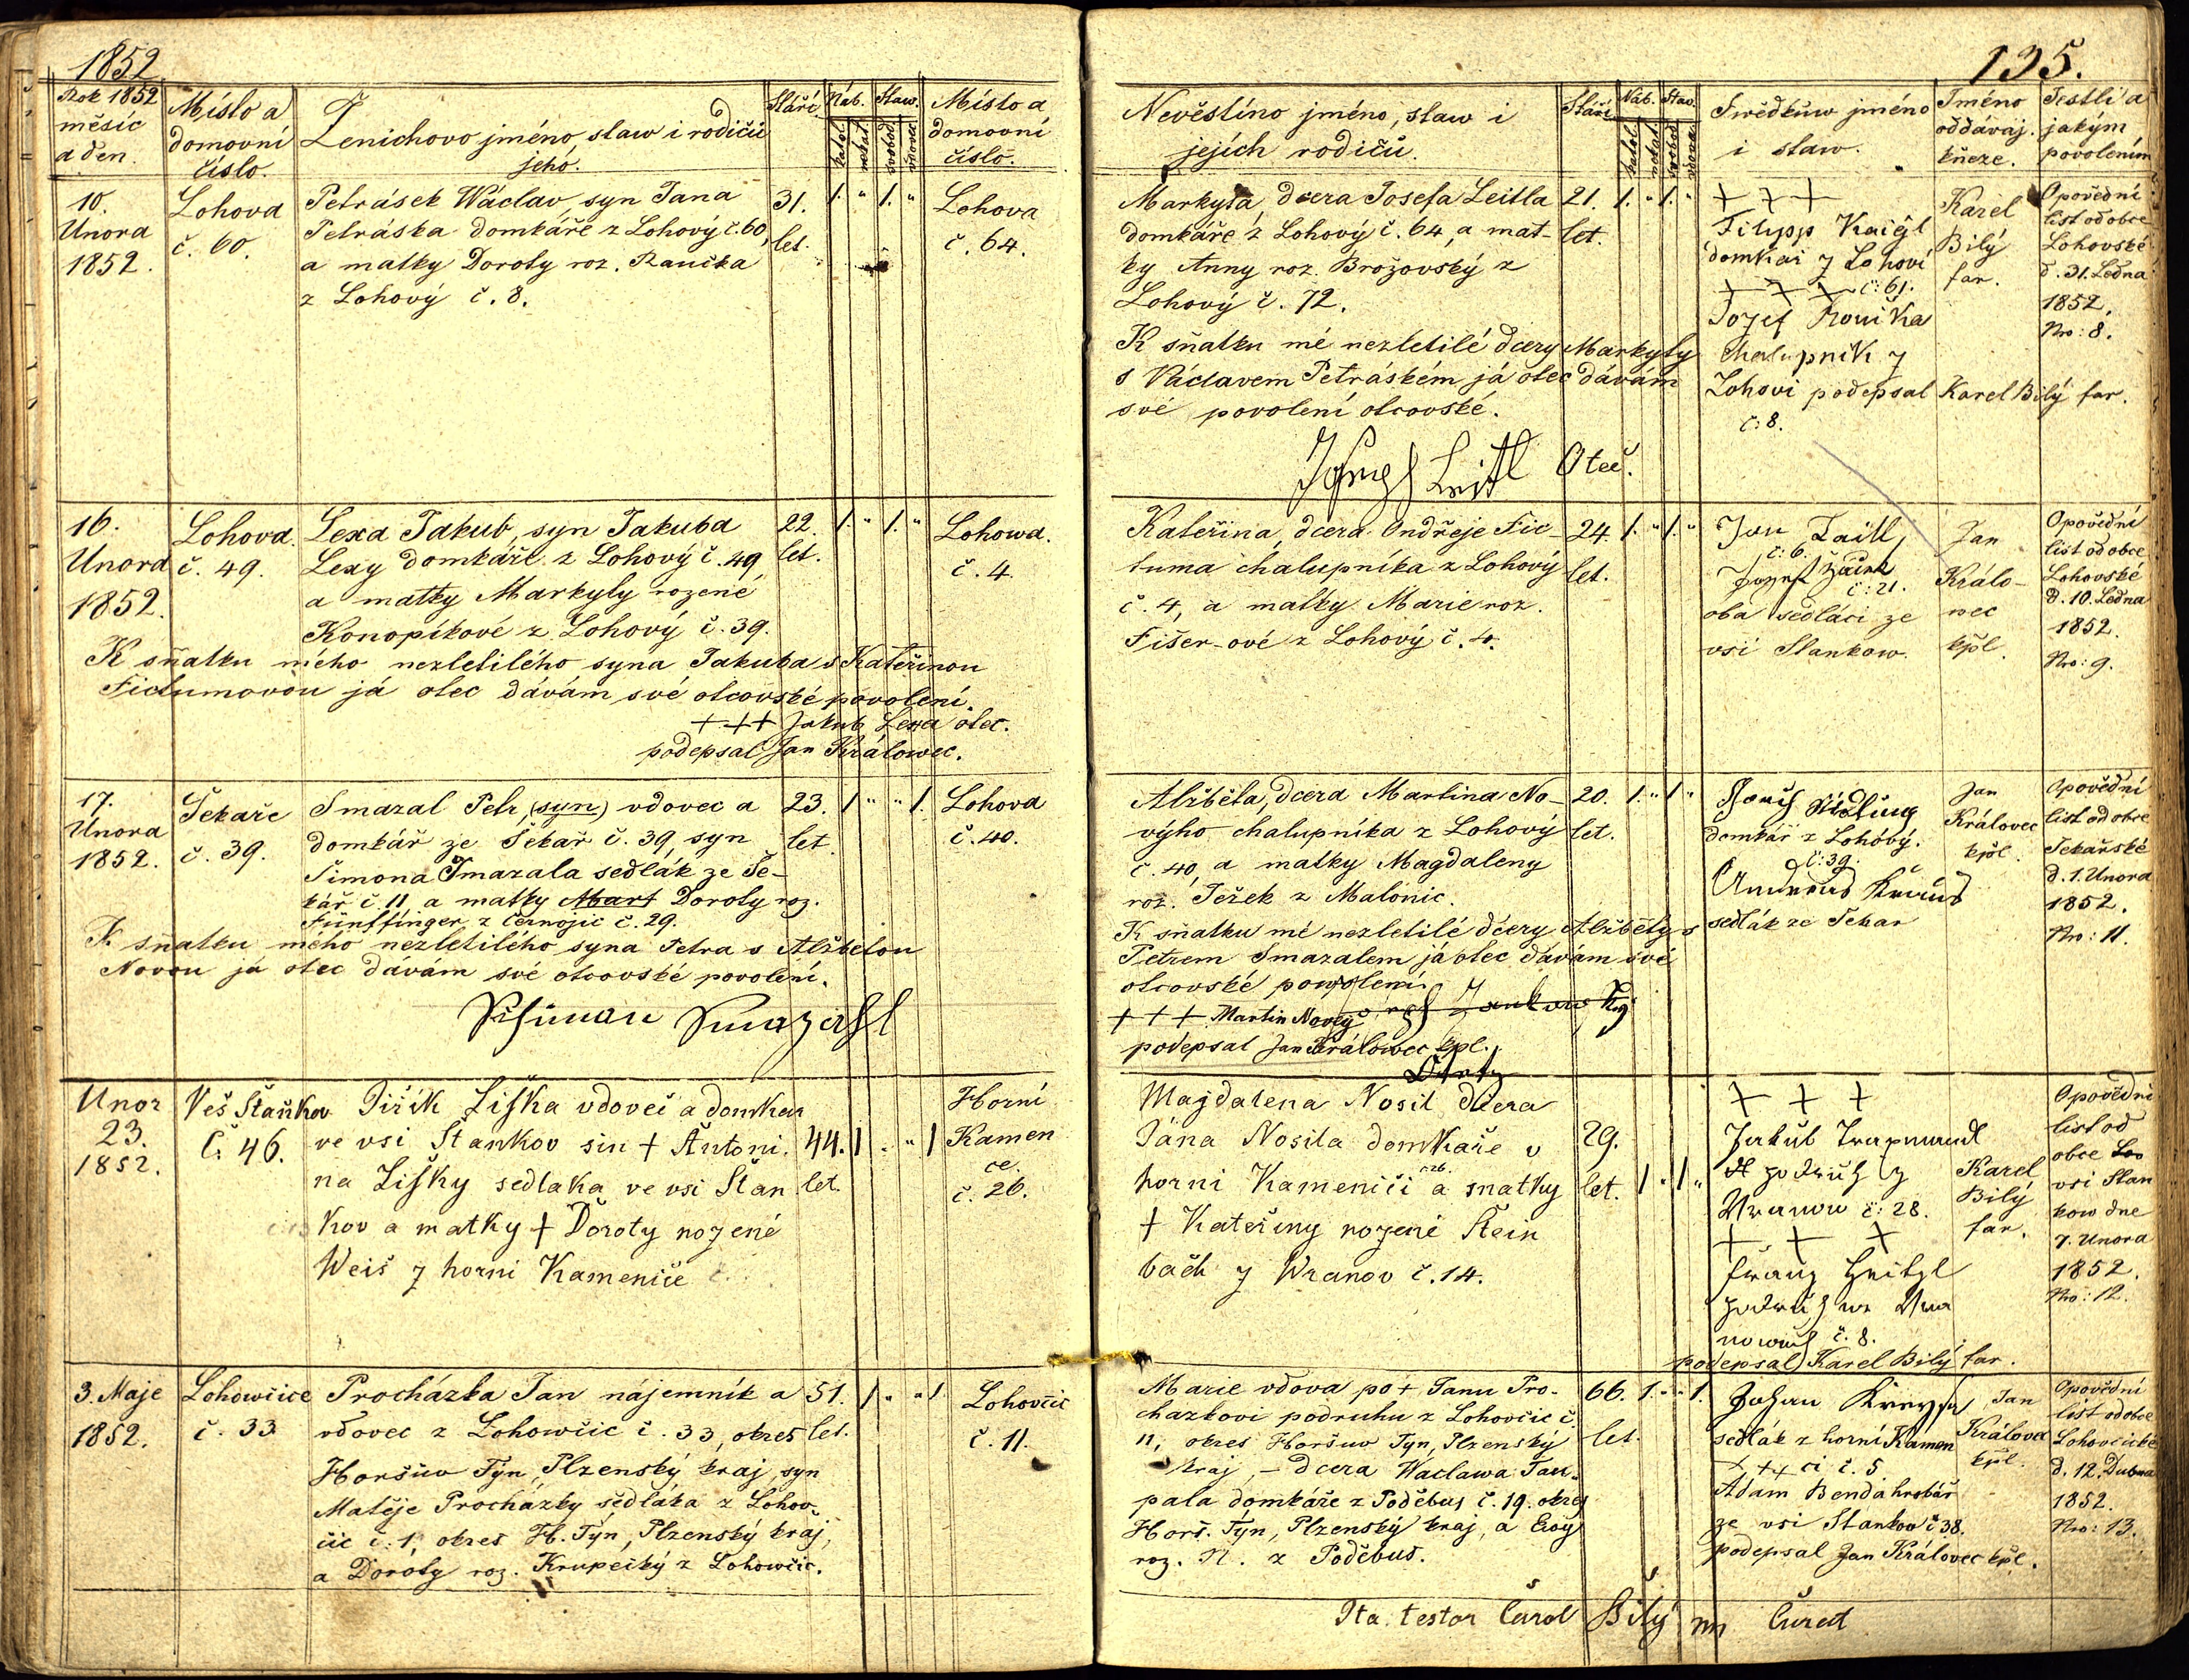 1852
135.
Rok 1852
měsíc
a den.
Místo a
domovní
číslo.
Ženichovo jméno, staw i rodičů
jeho.
Stáří.
Náb.
katol
nekat
Staw.
svobod
vdovec
Místo a
domovní
číslo.
Nevěstíno jméno, staw i
jejích rodičů.
Stáří.
Náb.
katol
nekat
Stav.
svobod
vdova
Swědkůw jméno
i staw.
Jméno
oddávaj.
kněze.
Jestli a
jakým
povolením
10.
Unora
1852.
Lohova
č. 60.
Petrásek Wáclav, syn Jana
Petráska domkáře z Lohový č. 60,
a matky Doroty roz. Raučka
z Lohový č. 8.
31.
let.
1. " 1. "
Lohova
č. 64.
Markyta, dcera Josefa Leitla
domkáře z Lohový č. 64, a mat-
ky Anny roz. Brožovský z
Lohový č. 72.
21.
let.
1. " 1. "
K sňatku mé nezletilé dcery Markyty
s Václavem Petráském já otec dávám
své povolení otcovské.
Joseph Leitl Otec.
+ + +
Filipp Kaigl
domkař z Lohovi
+ + + č: 61.
Jozef Rouika
chalupnik z
Lohovi podepsal Karel Bilý far.
č: 8.
Karel
Bilý
far.
Opovědní
list od obce
Lohovské
d. 31. Ledna
1852.
Nro: 8.
16.
Unora
1852.
Lohova.
č. 49.
Lexa Jakub, syn Jakuba
Lexy domkáře z Lohový č. 49,
a matky Markyty rozené
Konopíkové z Lohový č. 39.
22.
let.
1. " 1. "
Lohowa.
č. 4.
K sňatku mého nezletilého syna Jakuba s Kateřinou
Fictumovou já otec dávám své otcovské povolení.
+++ Jakub Lexa otec.
podepsal Jan Králowec.
Kateřina, dcera Ondřeje Fic-
tuma chalupníka z Lohový
č. 4, a matky Marie roz.
Fišer-ové z Lohový č. 4.
24.
let.
1. " 1. "
Jan Taitl,
č: 6.
č: 21.
oba sedláci ze
vsi Stankow.
Jan
Králo-
wec
kpl.
Opovědní
list od obce
Lohovské
d. 10. Ledna
1852.
Nro: 9.
17.
Unora
1852.
Sekařc
č. 39.
Smazal Petr, (syn) vdovec a
domkář ze Sekař č. 39, syn
Šimona Smazala sedlák ze Se-
kář č. 11, a matky Mart Doroty roz.
Fünffinger z Černojic č. 29.
23.
let
1 " " 1.
Lohova
č. 40.
K sňatku mého nezletilého syna Petra s Alžbětou
Novou já otec dávám své otcovské povolení.
Schimon Smazahl
Alžběta, dcera Martina No-
výho chalupníka z Lohový
č. 40, a matky Magdaleny
roz. Ježek z Malonic.
20.
let.
1. " 1 "
K sňatku mé nezletilé dcery Alžběty s
Petrem Smazalem já otec dávám své
otcovské powolení.
+ + + Martin Nový
podepsal Jan Králowec kpl.
domkář z Lohový.
č: 39.
Andreas
sedlák ze Sekar
Jan
Královec
kpl.
Opovědní
list od obce
Sekařské
d. 1. Unora
1852.
Nro: 11.
Unor
23.
1852.
Veš Staňkov
č. 46.
Jiřik Liška vdovec a domkar
ve vsi Stankov sin + Antoni.
na Lišky sedlaka ve vsi Stan
kov a matky + Doroty rozené
Weis z horni Kamenice
44.
let.
1 . " 1
Horní
Kamen
ce.
č. 26.
Majdalena Nosil dcera
Jána Nosila domkaře v
horni Kamenici č 26. a matky
+ Kateřiny rozené Stein
bach z Wranov č. 14.
29.
let.
1 " 1 "
+ + +
Jakub
podruh z
Wranow č: 28.
+ + +
Franz
podruh
č. 8.
podepsal Karel Bilý far.
Karel
Bilý
far.
Opovědní
list od
obce Lo
vsi Stan
kow dne
7. Unora
1852.
Nro: 12.
3. Maje
1852.
Lohowčice
č. 33
Procházka Jan nájemník a
vdovec z Lohowčic č. 33, okres
Horšůw Týn, Plzenský kraj, syn
Matěje Procházky sedláka z Lohov-
čic č. 1, okres H. Týn, Plzenský kraj,
a Doroty roz. Krupečký z Lohowčic.
51.
let.
1 " " 1
Lohovčic
č. 11.
Marie vdova po + Janu Pro-
chazkovi podruhu z Lohovčic č.
11, okres Horšuw Tyn, Plzenský
kraj, – dcera Waclawa Tau-
pala domkáře z Poděbus č. 19. okres
Horš. Tyn, Plzenský kraj, a Ewy
roz. N. z Poděbus.
66.
let.
1. " " 1.
Johan
sedlák z horní Kamen
+ + + ci č. 5
Adam Benda hrobář
ze vsi Stankov č 38.
podepsal Jan Královec kpl.
Jan
Králowec
kpl.
Opovědní
list od obce
Lohovčické
d. 12. Dubna
1852.
Nro: 13.
Ita testor Carol Bilý mp Curat